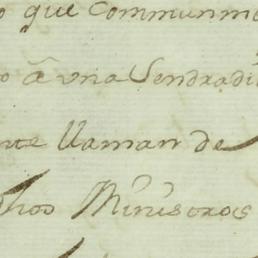 o que Communme
o â vna Sendradi
nte llaman de
dhos Ministros